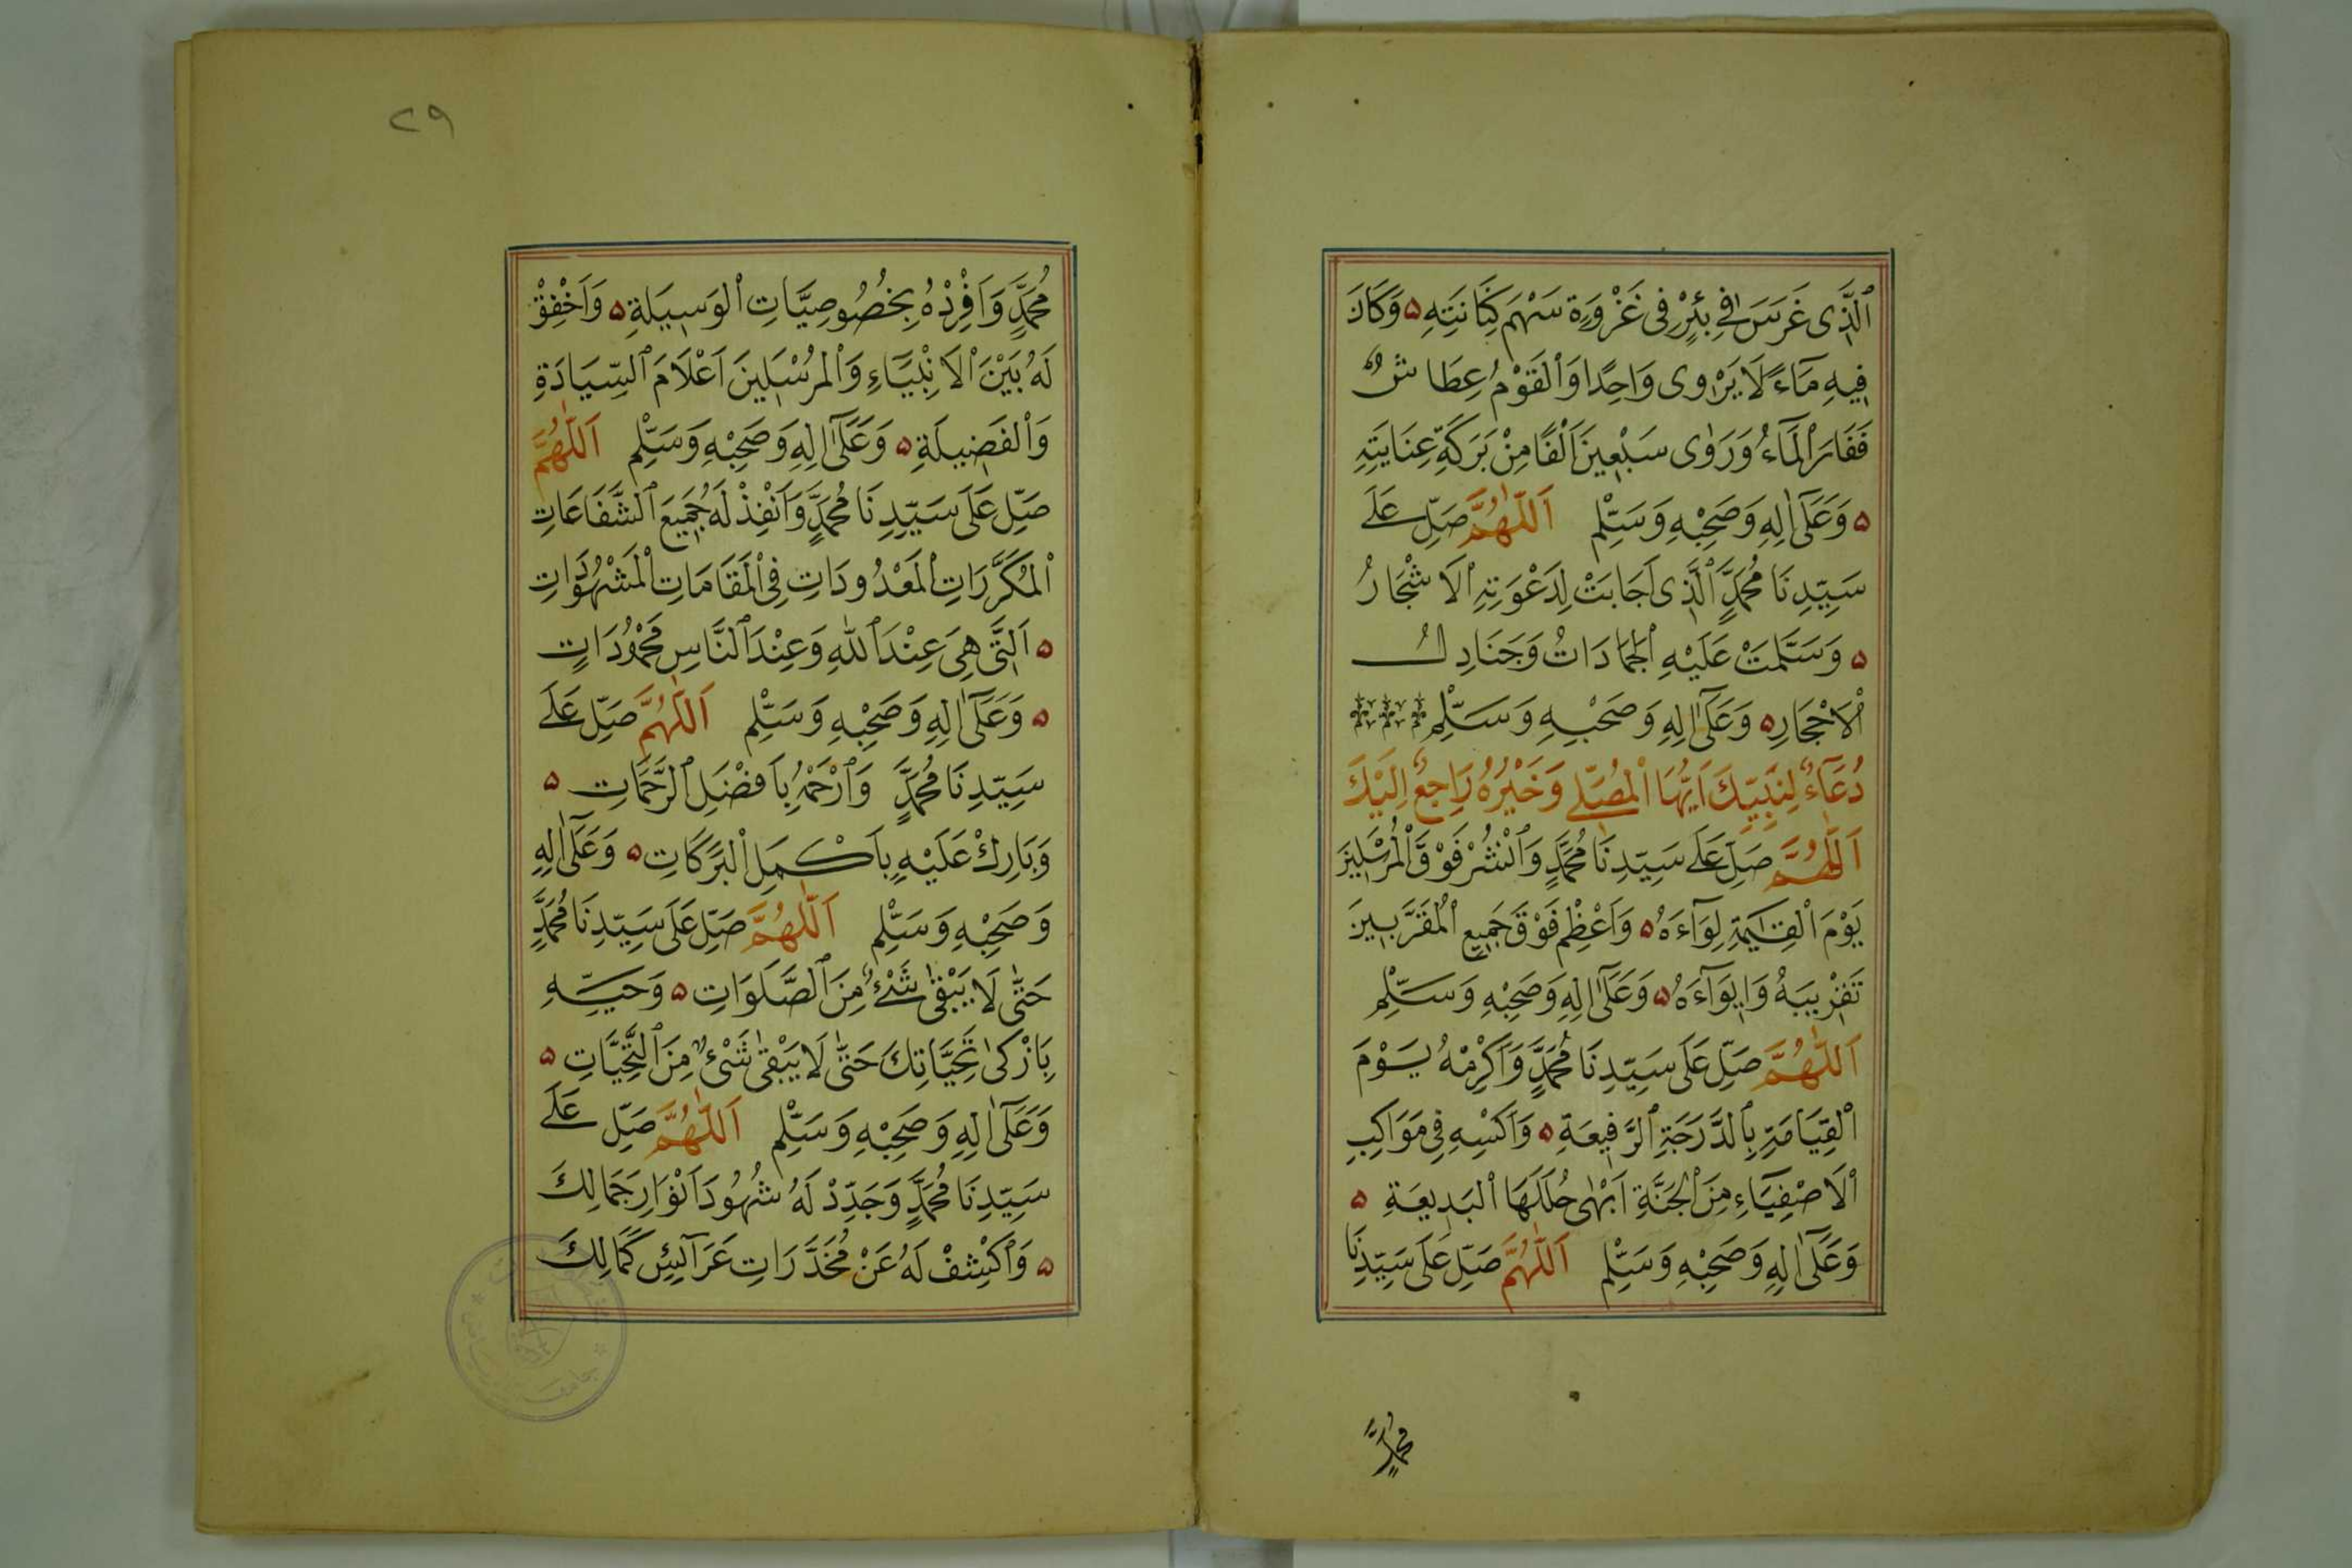 ٱلَّذِى غَرَسَ فِى بِئْرٍ فِى غَزْوَةٍ سَهْمَ كِنَانَتِهِ ۵ وَكَانَ
فِيهِ مَاءً لَا يَرْوِى وَاحِدًا وَٱلْقَوْمُ عِطَاشٌ
فَفَارَ ٱلْمَاءُ وَرَوٰى سَبْعِينَ اَلْفًا مِنْ بَرَكَةِ عِنَايَتِهِ
۵ وَعَلٰٓى اٰلِهِ وَصَحْبِهِ وَسَلِّمْ اَللّٰهُمَّ صَلِّ عَلٰى
سَيِّدِنَا مُحَمَّدٍ ٱلَّذِى اَجَابَتْ لِدَعْوَتِهِ ٱلْاَشْجَارُ
۵ وَسَلَّمَتْ عَلَيْهِ ٱلْجَمَادَاتُ وَجَنَادِلُ
ٱلْاَحْجَارِ ۵ وَعَلٰٓى اٰلِهِ وَصَحْبِهِ وَسَلِّمْ
دُعَآءٌ لِنَبِيِّكَ اَيُّهَا ٱلْمُصَلِّى وَخَيْرُهُ رَاجِعٌ اِلَيْكَ
اَللّٰهُمَّ صَلِّ عَلٰى سَيِّدِنَا مُحَمَّدٍ وَٱنْشُرْ فَوْقَ ٱلْمُرْسَلِينَ
يَوْمَ ٱلْقِيٰمَةِ لِوَآءَهُ ۵ وَاَعْظِمْ فَوْقَ جَمِيعِ ٱلْمُقَرَّبِينَ
تَقْرِيبَهُ وَاِيوَآءَهُ ۵ وَعَلٰٓى اٰلِهِ وَصَحْبِهِ وَسَلِّمْ
اَللّٰهُمَّ صَلِّ عَلَى سَيِّدِنَا مُحَمَّدٍ وَاَكْرِمْهُ يَوْمَ
ٱلْقِيَامَةِ بِٱلدَّرَجَةِ ٱلرَّفِيعَةِ ۵ وَٱكْسِهِ فِى مَوَاكِبِ
ٱلْاَصْفِيَاءِ مِنَ ٱلْجَنَّةِ اَبْهٰى حُلَلِهَا ٱلْبَدِيعَةِ ۵
وَعَلٰٓى اٰلِهِ وَصَحْبِهِ وَسَلِّمْ اَللّٰهُمَّ صَلِّ عَلَى سَيِّدِنَا
مُحَمَّدٍ
٢٩
مُحَمَّدٍ وَاَفْرِدْهُ بِخُصُوصِيَّاتِ ٱلْوَسِيلَةِ ۵ وَاَخْفِقْ
لَهُ بَيْنَ ٱلْاَنْبِيَاءِ وَٱلْمُرْسَلِينَ اَعْلَامَ ٱلسِّيَادَةِ
وَٱلْفَضِيلَةِ ۵ وَعَلٰٓى اٰلِهِ وَصَحْبِهِ وَسَلِّمْ اَللّٰهُمَّ
صَلِّ عَلَى سَيِّدِنَا مُحَمَّدٍ وَاَنْفِذْ لَهُ جَمِيعَ ٱلشَّفَاعَاتِ
ٱلْمُكَرَّرَاتِ ٱلْمَعْدُودَاتِ فِى ٱلْمَقَامَاتِ ٱلْمَشْهُودَاتِ
۵ اَلَّتِى هِىَ عِنْدَ ٱللّٰهِ وَعِنْدَ ٱلنَّاسِ مَحْمُودَاتٍ
۵ وَعَلٰٓى اٰلِهِ وَصَحْبِهِ وَسَلِّمْ اَللّٰهُمَّ صَلِّ عَلٰى
سَيِّدِنَا مُحَمَّدٍ وَٱرْحَمْهُ بِاَفْضَلِ ٱلرَّحَمَاتِ ۵
وَبَارِكْ عَلَيْهِ بِاَكْمَلِ ٱلْبَرَكَاتِ ۵ وَعَلٰٓى اٰلِهِ
وَصَحْبِهِ وَسَلِّمْ اَللّٰهُمَّ صَلِّ عَلَى سَيِّدِنَا مُحَمَّدٍ
حَتّٰى لَا يَبْقٰى شَىْءٌ مِنَ ٱلصَّلَوَاتِ ۵ وَحَيِّهِ
بِاَزْكٰى تَحِيَّاتِكَ حَتّٰى لَا يَبْقٰى شَىْءٌ مِنَ ٱلتَّحِيَّاتِ ۵
وَعَلٰٓى اٰلِهِ وَصَحْبِهِ وَسَلِّمْ اَللّٰهُمَّ صَلِّ عَلٰى
سَيِّدِنَا مُحَمَّدٍ وَجَدِّدْ لَهُ شُهُودَ اَنْوَارِ جَمَالِكَ
۵ وَٱكْشِفْ لَهُ عَنْ مُخَدَّرَاتِ عَرَآئِسِ كَمَالِكَ